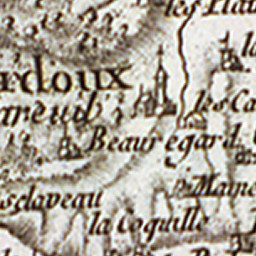 les Hau
la
rdoux
areuil
les Ca
Beauregard
Maine
sclaveau
la Coquille